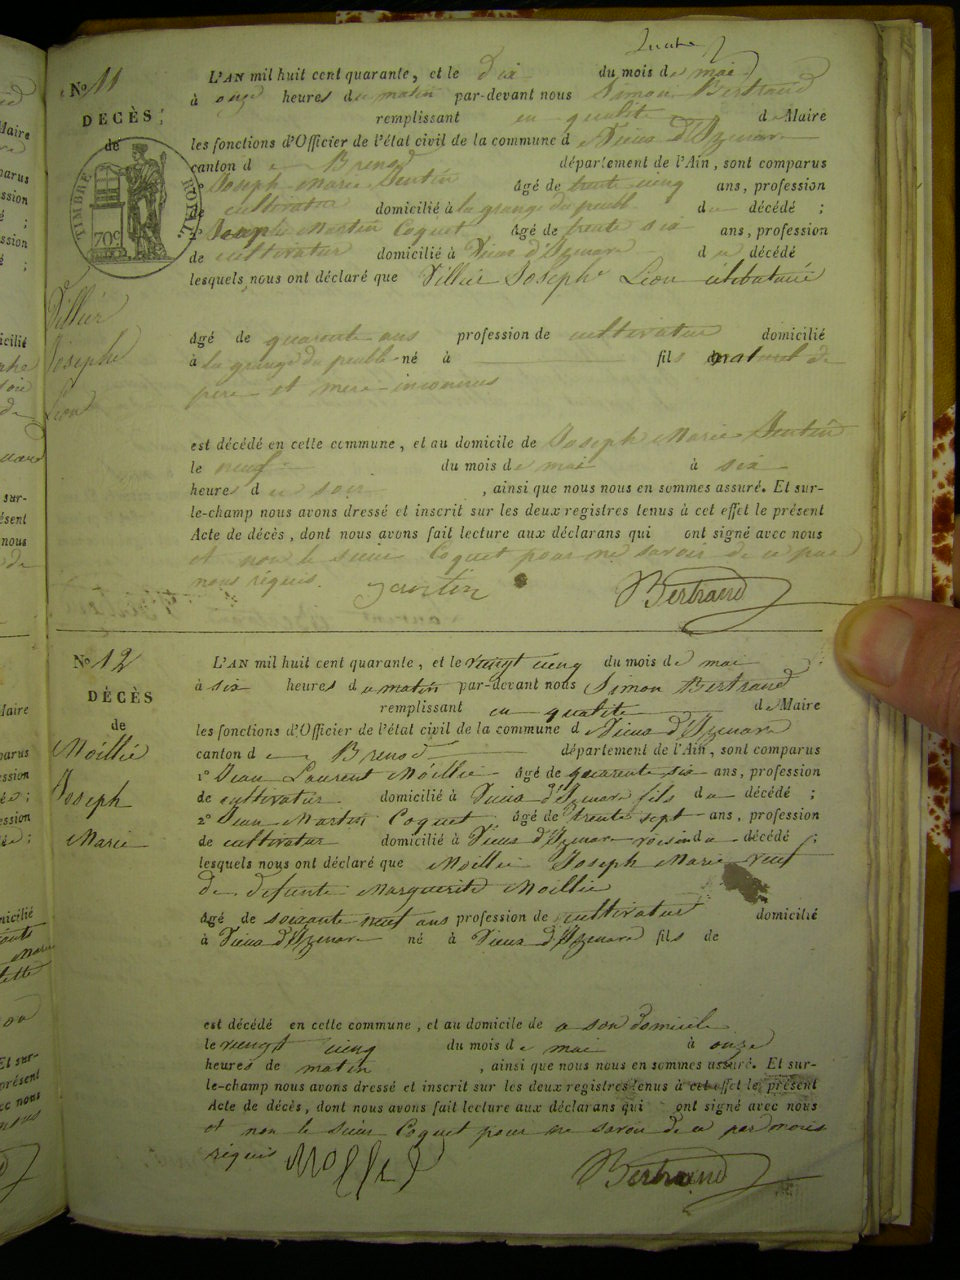 Quatre
N° 11
L'AN mil huit cent quarante, et le dix du mois de mai
à onze heures du matin par-devant nous Simon Bertrand
DÉCÈS
remplissant en qualité de Maire
de
les fonctions d'Officier de l'état civil de la commune de Vieux d'Izenave
canton de Brenod département de l'Ain, sont comparus
TIMBRE ROYAL
70c
1° Joseph Marie âgé de trente cinq ans, profession
de cultivateur domicilié à la grange du peuble du décédé ;
2° Joseph Martin Coquet âgé de trente six ans, profession
de cultivateur domicilié à Vieux d'Izenave du décédé
lesquels nous ont déclaré que Villié Joseph Léon célibataire
Villié
Joseph
Léon
âgé de quarante ans profession de cultivateur domicilié
à la grange du peuble né à fils naturel de
père et mère inconnus
est décédé en cette commune, et au domicile de Joseph Marie
le neuf du mois de mai à six
heures du soir, ainsi que nous nous en sommes assuré. Et sur-
le-champ nous avons dressé et inscrit sur les deux registres tenus à cet effet le présent
Acte de décès, dont nous avons fait lecture aux déclarans qui ont signé avec nous
et non le sieur Coquet pour ne savoir de ce par
nous réquis.
Bertrand
N° 12
L'AN mil huit cent quarante, et le vingt cinq du mois de mai
à six heures du matin par-devant nous Simon Bertrand
DÉCÈS
remplissant en qualité de Maire
de
les fonctions d'Officier de l'état civil de la commune de Vieux d'Izenave
Moillié
Joseph
Marie
canton de Brenod département de l'Ain, sont comparus
1° Jean Laurent Moillié âgé de quarante six ans, profession
de cultivateur domicilié à Vieux d'Izenave fils du décédé ;
2° Jean Martin Coquet âgé de trente sept ans, profession
de cultivateur domicilié à Vieux d'Izenave voisin du décédé ;
lesquels nous ont déclaré que Moillié Joseph Marie veuf
de défunte Marguerite Moillié
âgé de soixante neuf ans profession de cultivateur domicilié
à Vieux d'Izenave né à Vieux d'Izenave fils de
est décédé en cette commune, et au domicile de a son domicile
le vingt cinq du mois de mai à onze
heures de matin, ainsi que nous nous en sommes assuré. Et sur-
le-champ nous avons dressé et inscrit sur les deux registres tenus à cet effet le présent
Acte de décès, dont nous avons fait lecture aux déclarans qui ont signé avec nous
et non le sieur Coquet pour ne savoir de ce par nous
réquis
Bertrand